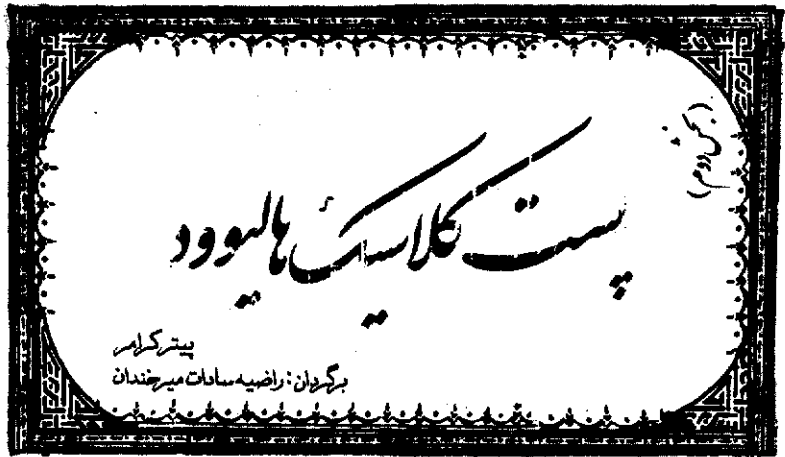 (بخش دوم)
پست کلاسیک هالیوود
پیتر کرامر
برگردان: راضیه سادات میرخندان